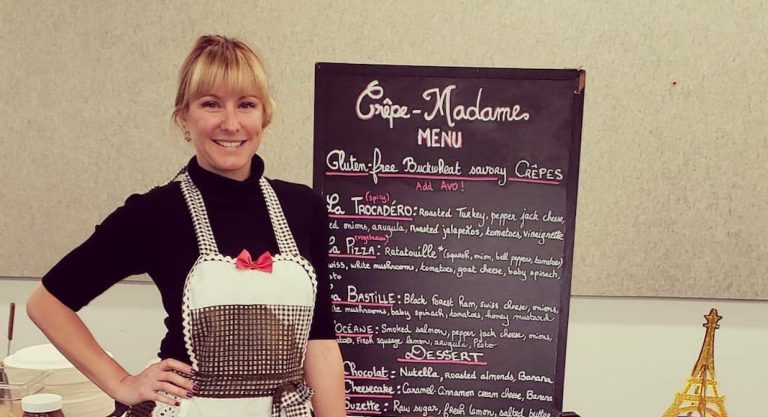 Crêpe-Madame
MENU
Gluten-free Buckwheat savory CRÊPES
Add Avo!
(spicy)
La TROCADÉRO: Roasted Turkey, pepper jack cheese,
onions, arugula, roasted jalapeños, tomatoes, vinaigrette
(vegetarian)
La PIZZA: Ratatouille* (squash, onion, bell peppers, tomatoes)
swiss, white mushrooms, tomatoes, goat cheese, baby spinach,
pesto
La BASTILLE: Black Forest Ham, swiss cheese, onions,
white mushrooms, baby spinach, tomatoes, honey mustard
L'OCÉANE: Smoked salmon, pepper jack cheese, onions,
tomatoes, Fresh squeeze lemon, arugula, Pesto
DESSERT
Chocolate: Nutella, roasted almonds, Banana
Cheesecake: Caramel-Cinnamon cream cheese, Banana
Suzette: Raw sugar, fresh lemon, salted butter